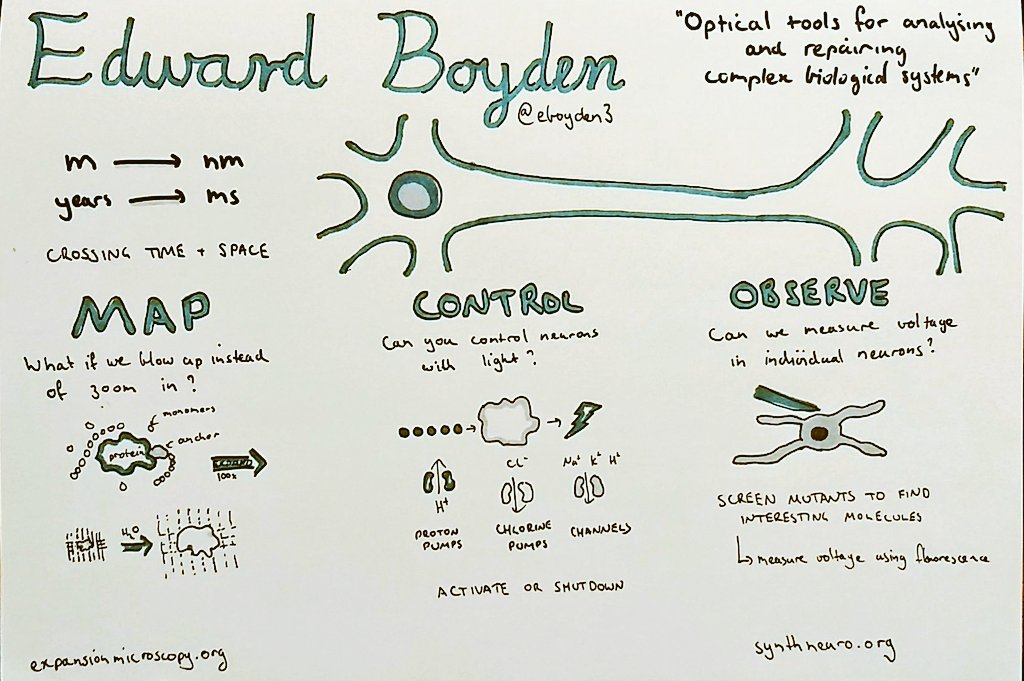 Edward Boyden
@eboyden3
"Optical tools for analysing
and repairing
complex biological systems"
m → nm
years → ms
CROSSING TIME + SPACE
MAP
What if we blow up instead
of zoom in?
monomers
anchor
protein
100x
H₂O
expansionmicroscopy.org
CONTROL
Can you control neurons
with light?
H⁺
Cl⁻
Na⁺ K⁺ H⁺
PROTON
PUMPS
CHLORINE
PUMPS
CHANNELS
ACTIVATE OR SHUTDOWN
OBSERVE
Can we measure voltage
in individual neurons?
SCREEN MUTANTS TO FIND
INTERESTING MOLECULES
↳ measure voltage using fluorescence
synthneuro.org